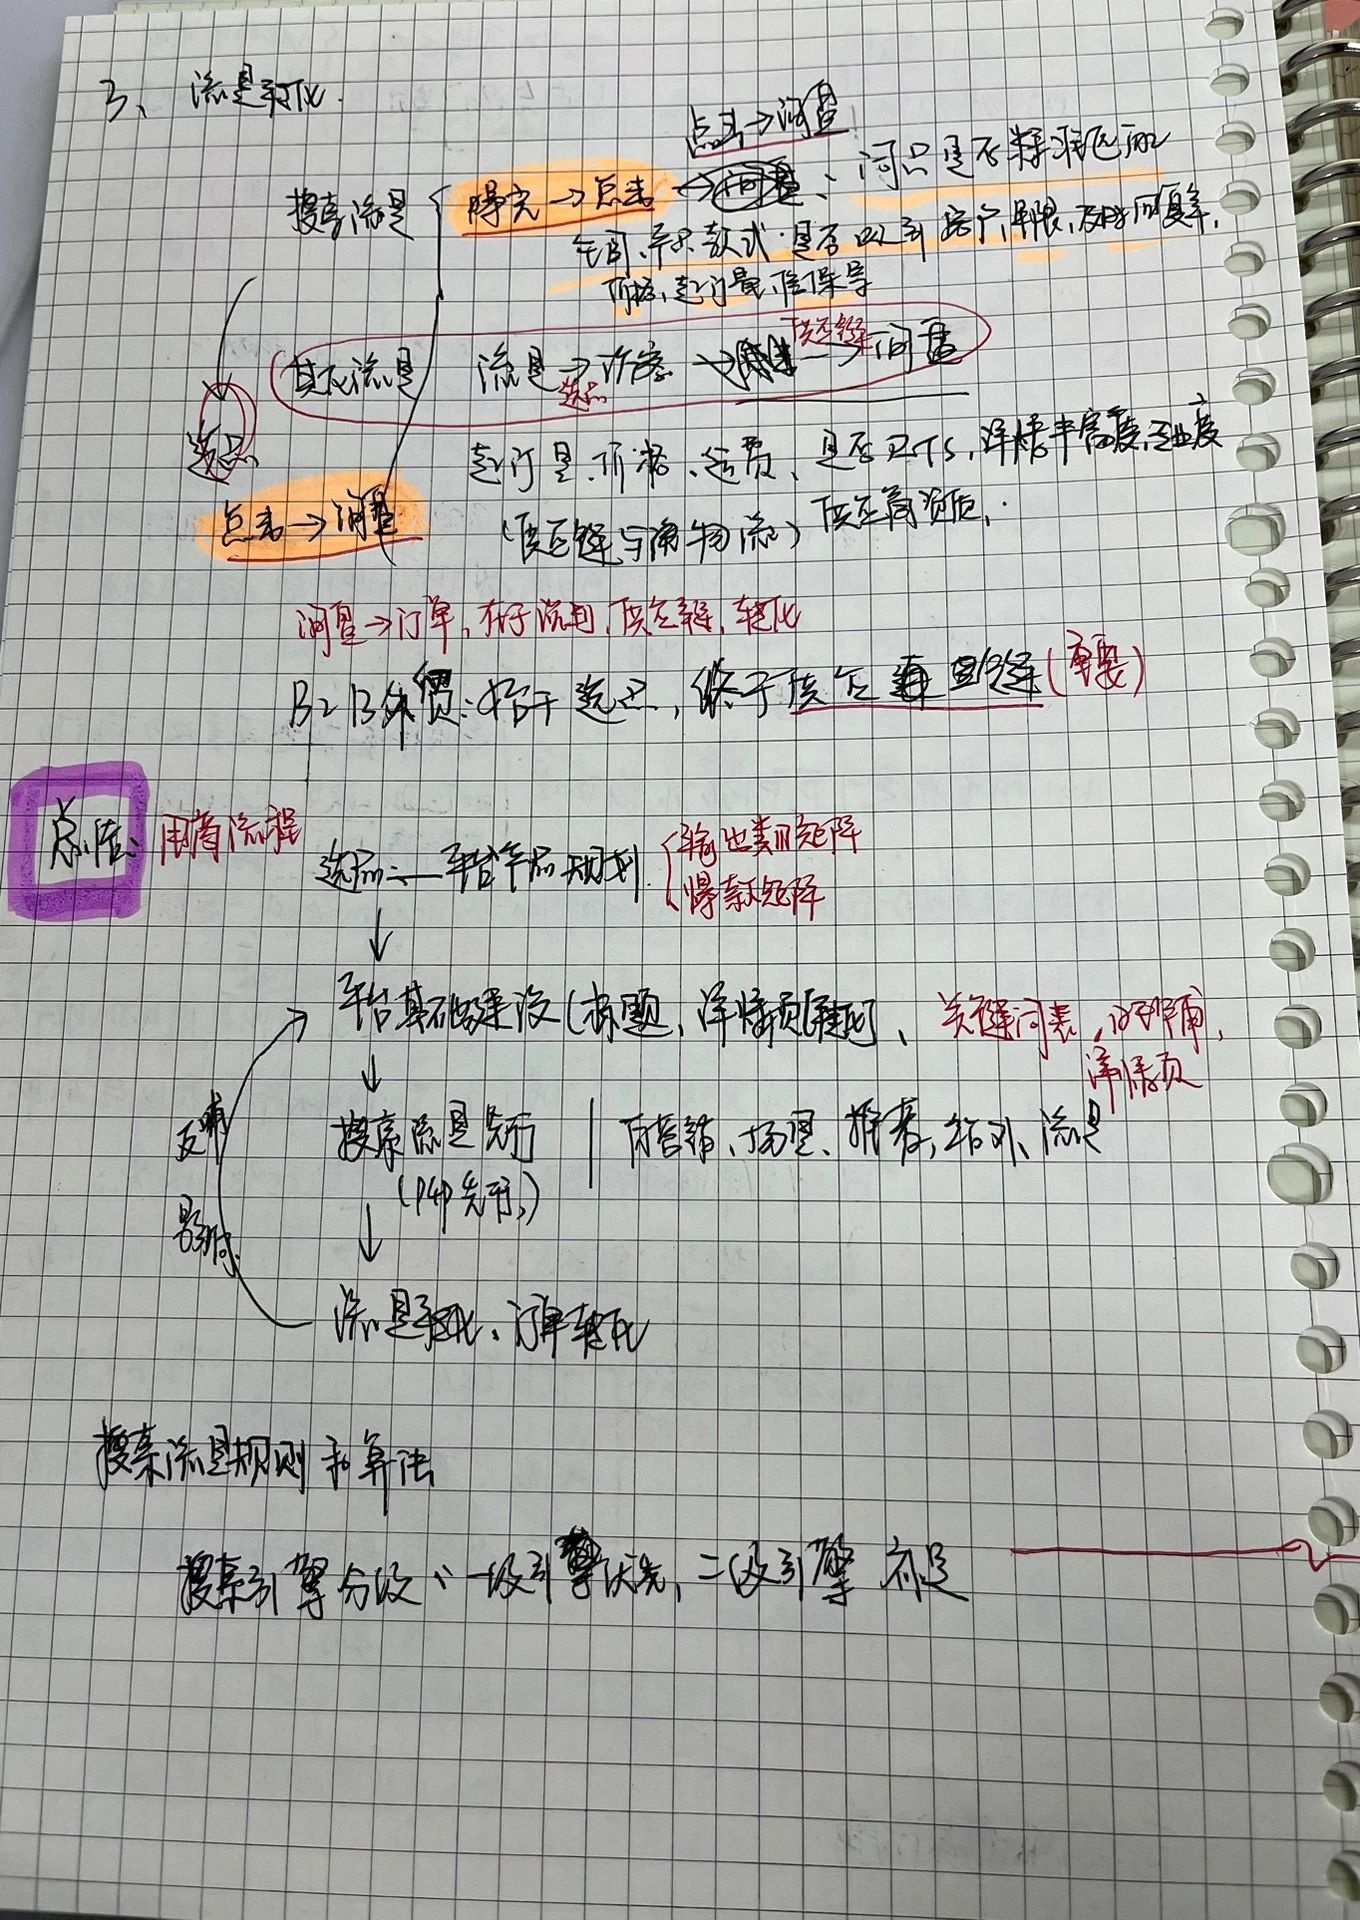 3、流量转化
点击→询盘
搜索流量 曝光→点击 → ：词只是否精准匹配
主图、产品款式、是否以到客户、年限、及时回复率,
价格、起订量、信保等
其他流量 流量→访客→ 供应链→询盘
选品
选品
起订量、价格、运费、是否RTS,详情丰富度、专业度
点击→询盘
(供应链,与海外物流)供应商资质,
询盘→订单,在于谈判,供应链,转化
B2B外贸:始于选品,终于供应链管理(重要)
总结: 电商流程
选品:——平台产品规划 输出类目矩阵
爆款矩阵
↓
平台基础建设(标题,详情页框架)、关键词表,
详情页
↓
反哺 搜索流量先行 | 内营销、场景、推荐,站外、流量
(P4P先行)
↓
流量转化、订单转化
搜索流量规则和算法
搜索引擎分级:一级引擎优先,二级引擎补足